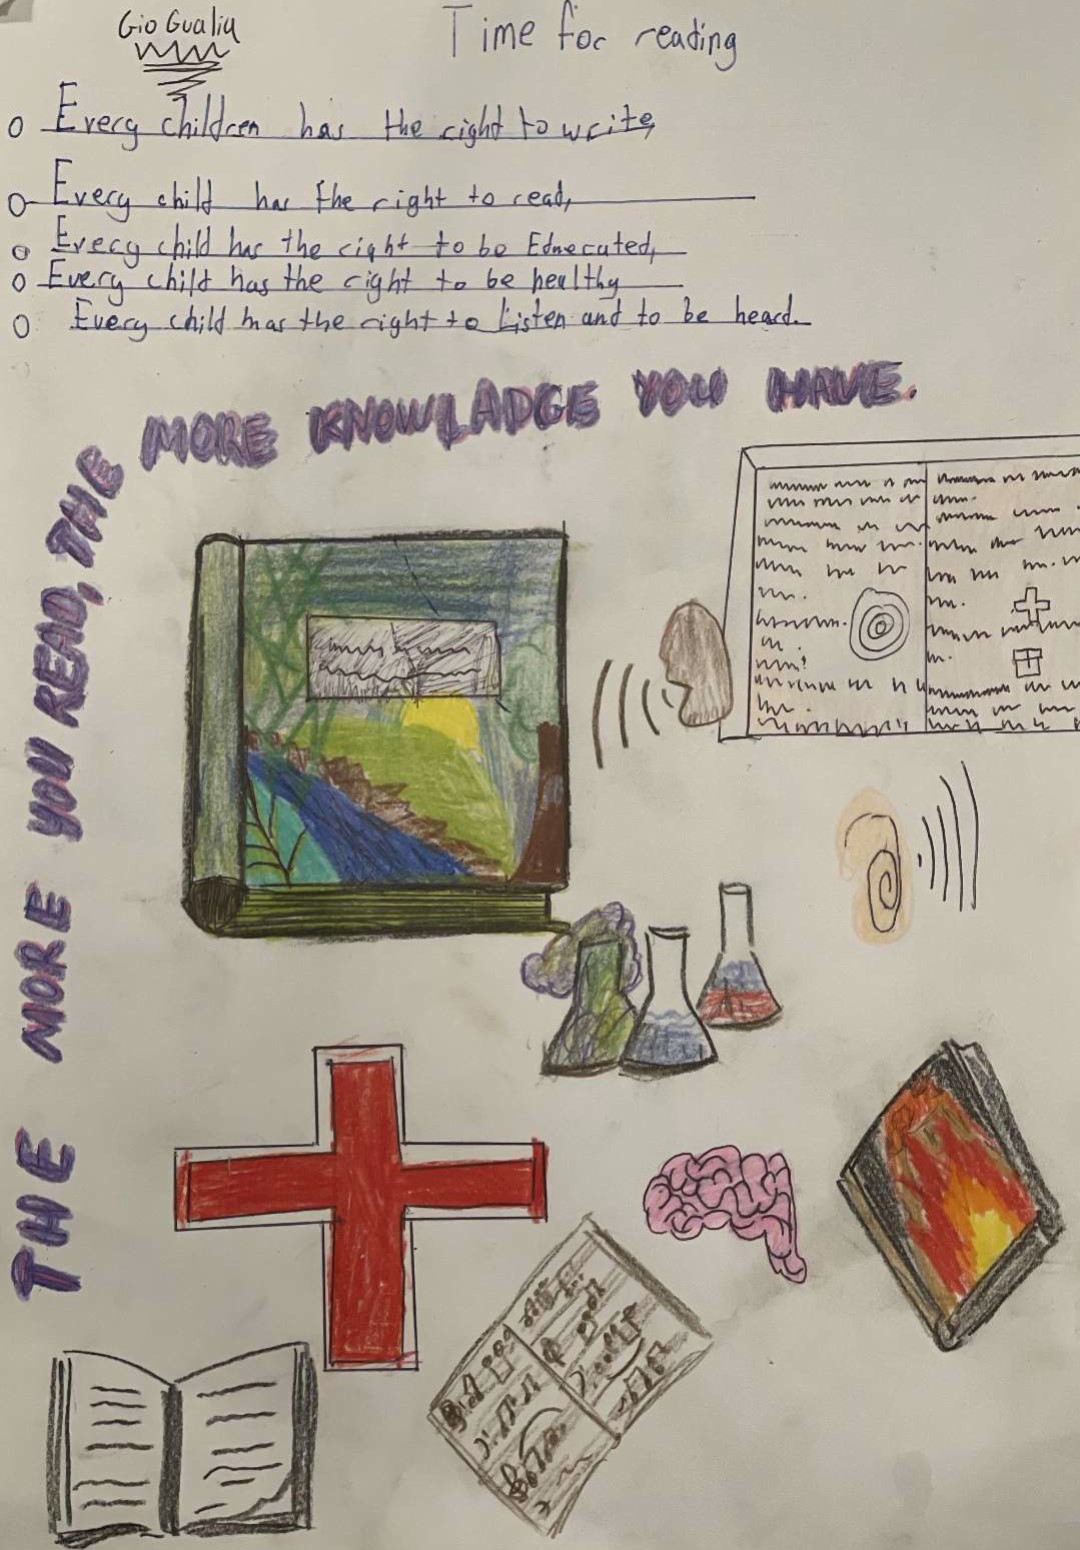 Gio Gualiu
Time for reading
Every children has the right to write,
Every child has the right to read,
Every child has the right to be Eduecuted,
Every child has the right to be healthy
Every child has the right to listen and to be heard.
THE MORE YOU READ, THE
MORE KNOWLADGE YOU HAVE.